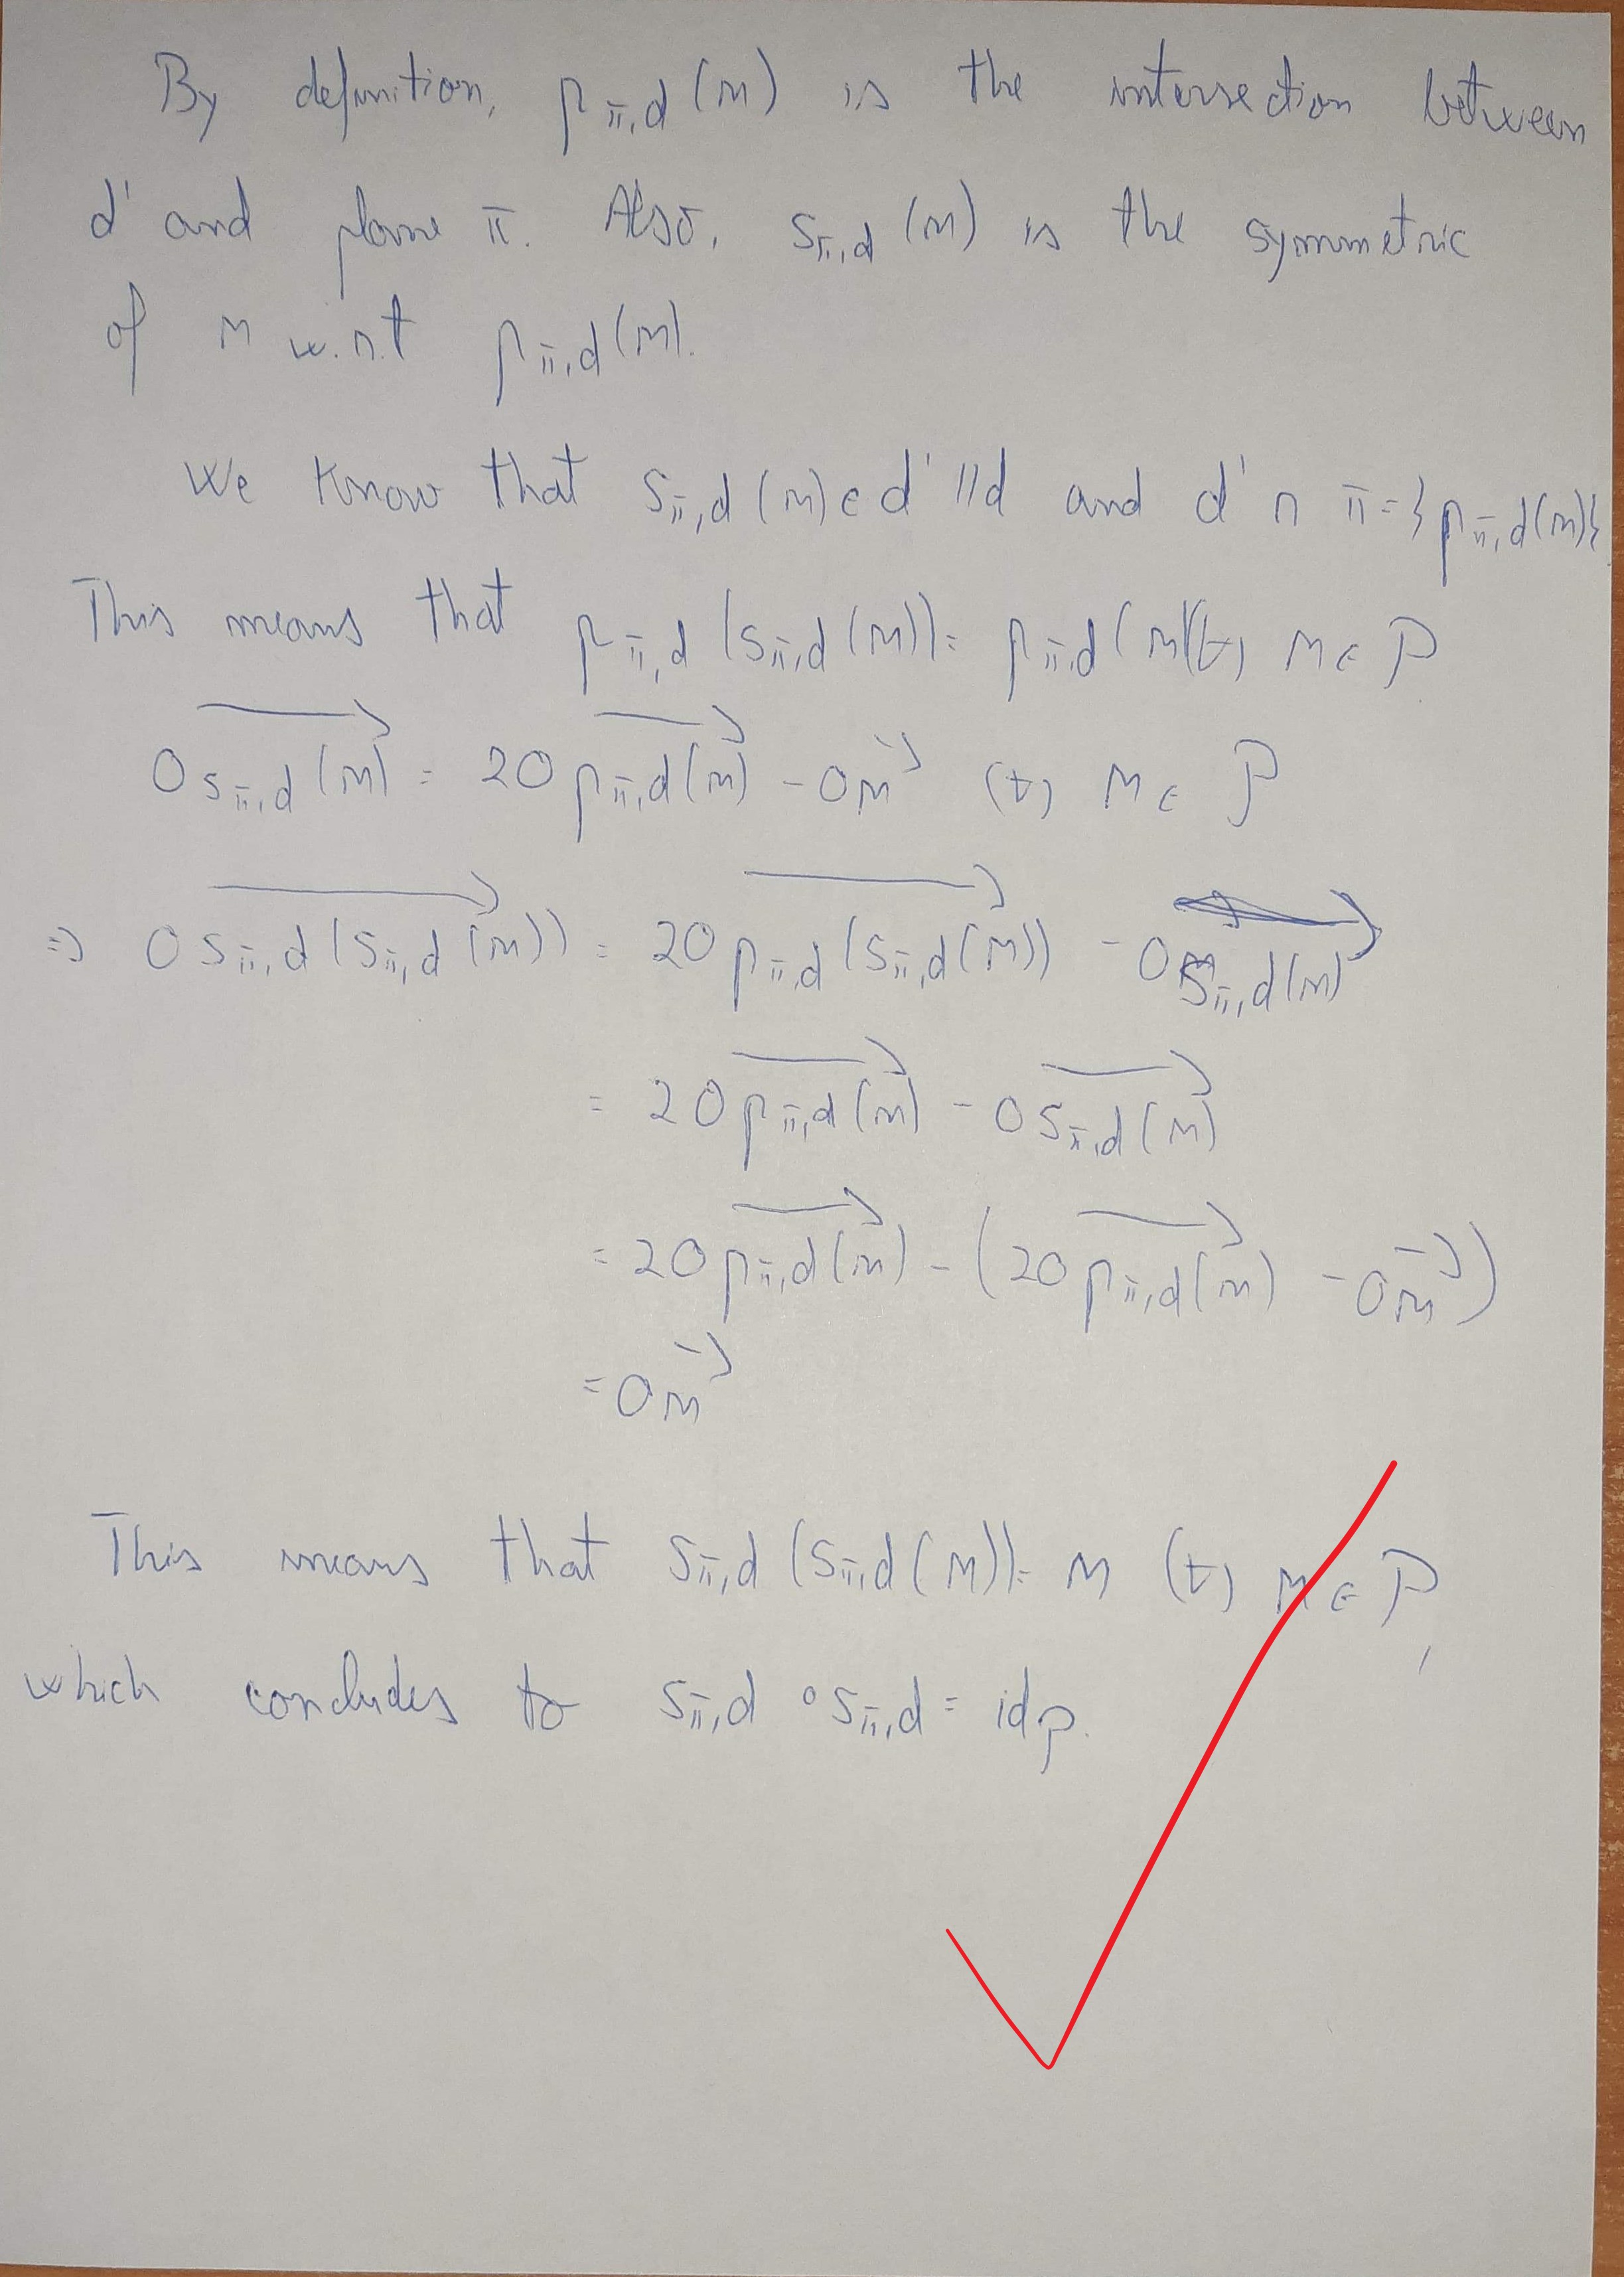 By definition, p_{π,d}(M) is the intersection between
d' and plane π. Also, s_{π,d}(M) is the symmetric
of M w.r.t p_{π,d}(M).
We know that s_{π,d}(M) ∈ d' || d and d' ∩ π = {p_{π,d}(M)}
This means that p_{π,d}(s_{π,d}(M)) = p_{π,d}(M) (∀) M ∈ P
\overrightarrow{O s_{π,d}(M)} = 2\overrightarrow{O p_{π,d}(M)} - \overrightarrow{OM} (∀) M ∈ P
=> \overrightarrow{O s_{π,d}(s_{π,d}(M))} = 2\overrightarrow{O p_{π,d}(s_{π,d}(M))} - \overrightarrow{O s_{π,d}(M)}
= 2\overrightarrow{O p_{π,d}(M)} - \overrightarrow{O s_{π,d}(M)}
= 2\overrightarrow{O p_{π,d}(M)} - (2\overrightarrow{O p_{π,d}(M)} - \overrightarrow{OM})
= \overrightarrow{OM}
This means that s_{π,d}(s_{π,d}(M)) = M (∀) M ∈ P,
which concludes to s_{π,d} ∘ s_{π,d} = id_P.